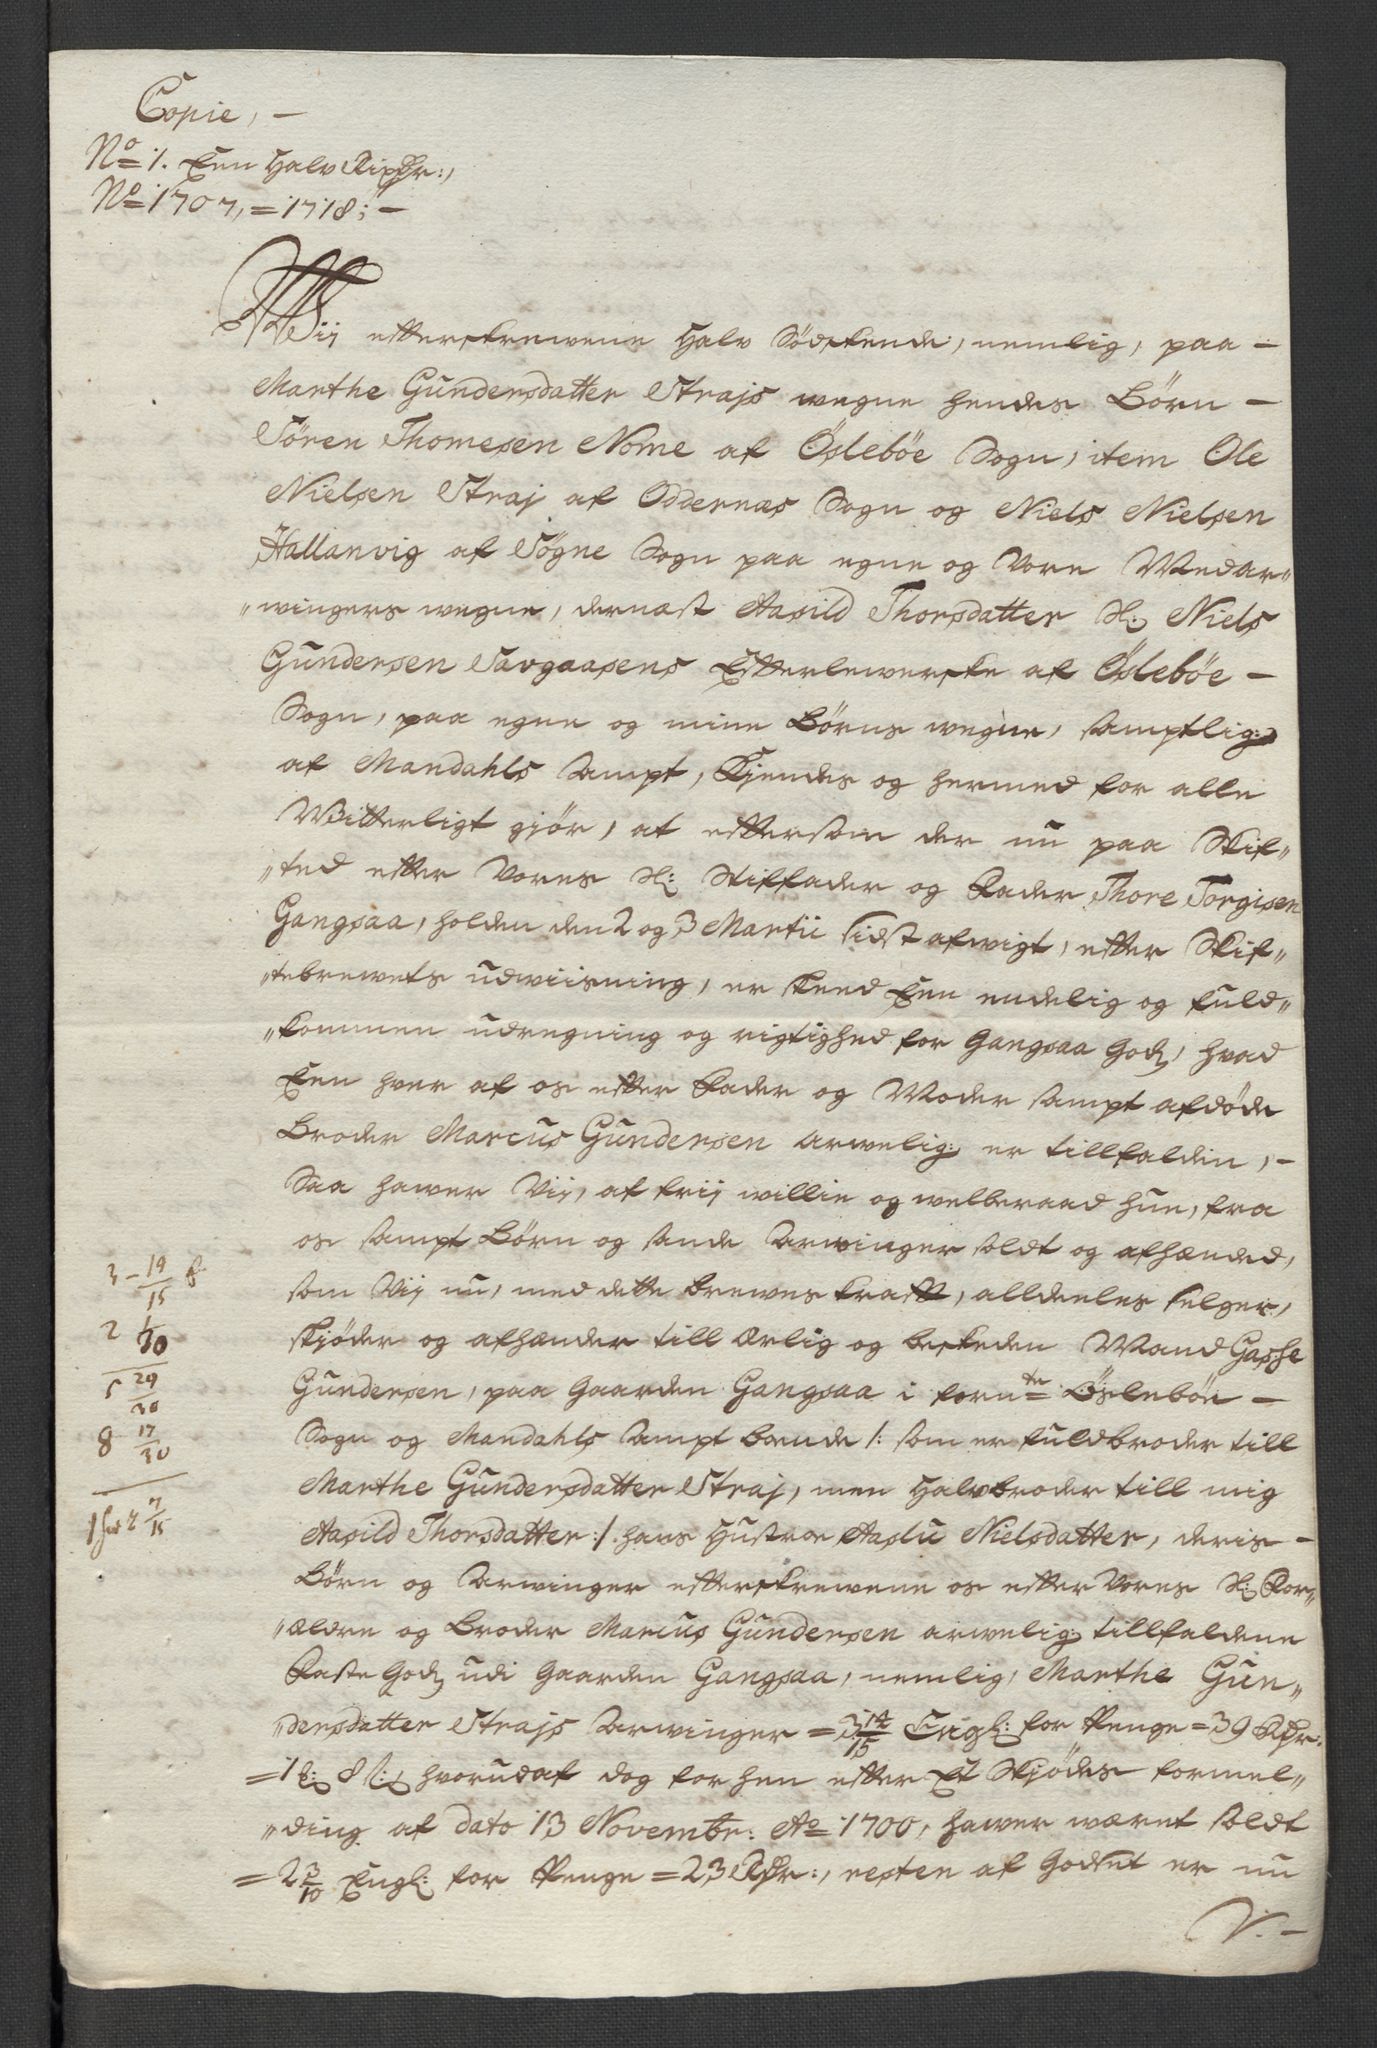 Copie, —
No 1. Een Halv Rixdr:,
No 1707, = 1718; —
Wii efterskrewene Halv Södskende, nemlig, paa —
Marthe Gundersdatter Strajs wegne hendes Börn —
Sören Thomesen Nome af Ösleböe Sogn, item Ole
Nielsen Straj af Oddernæs Sogn og Niels Nielsen
Hallanvig af Sögne Sogn paa egne og Vore Medar„
„wingers wegne, dernæst Aasild Thorsdatter Sl: Niels
Gundersen Savgaasens Efterlewerske af Ösleböe —
Sogn, paa egne og mine Börns wegne, samptlig:
af Mandahls Ampt, Kjendes og hermed for alle
Witterligt gjör, at eftersom der nu paa Skif„
„ted efter Vores Sl: Stiffader og Fader Thore Torgisen
Gangsaa, holden den 2 og 3 Martii sidst afwigt, efter Skif„
„tebrewets udwiisning, er skeed Een endelig og fuld„
„kommen udregning og rigtighed for Gangsaa Gods, hvad
Een hver af os efter Fader og Moder sampt afdöde
Broder Marcus Gundersen arwelig: er tillfalden, —
Saa hawer Vii, af frii willie og welberaad hue, fra
os sampt Börn og sande Arwinger soldt og afhænded,
som Vii nu, med dette brewes kraft, alldeeles selger,
skjöder og afhænder till Ærlig og beskeden Mand Gasse
Gundersen, paa Gaarden Gangsaa i fornte Ösleböe —
Sogn og Mandahls Ampt boende /: som er fuldbroder till
Marthe Gundersdatter Straj, men Halvbroder till mig
Aasild Thorsdatter :/ hans Hustroe Aaslu Nielsdatter, deris —
Börn og Arwinger efterskrewene os efter Vores Sl: For„
„ældre og Broder Marcus Gundersen arwelig: tillfaldene
Faste Gods udi Gaarden Gangsaa, nemlig, Marthe Gun„
„dersdatter Strajs Arwinger = 3 14/15 Engl: for Penge = 39 Rdr:
= 1 8 s:, hvorudaf dog for hen efter Et Skjödes formel„
„ding af dato 13 Novembr: Ao 1700, hawer wæret soldt
= 2 3/10 Engl: for Penge = 23 Rdr:, resten af Godset er nu
V. —
3 – 14/15
2 1/30
5 29/30
8 17/30
1 2 7/15